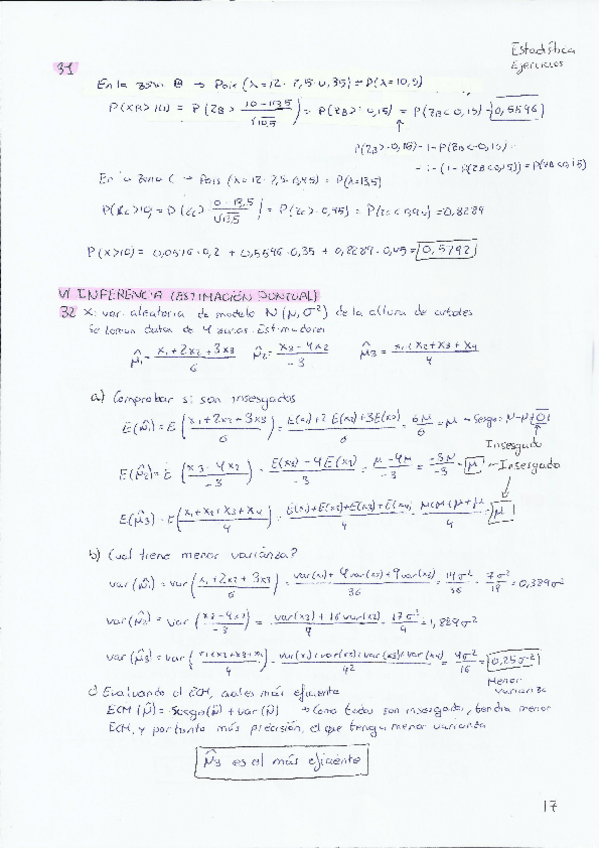 Estadística
Ejercicios
31
En la zona B → Pois (λ=12· 7,5·0,35) = P(λ=10,5)
= P(ZB > -0,15) = P(ZB < 0,15) = 0,5596
P(ZB > -0,15) = 1 - P(ZB < -0,15) =
= 1 - (1 - P(ZB < 0,15)) = P(ZB < 0,15)
En la zona C → Pois (λ=12· 7,5· 0,45) = P(λ=13,5)
= 0,8289
P(X>10) = 0,0516·0,2 + 0,5596·0,35 + 0,8289·0,45 = 0,5792
VI INFERENCIA (ESTIMACIÓN PUNTUAL)
32 X: var. aleatoria de modelo N(μ, σ²) de la altura de arboles
Se toman datos de 4 zonas. Estimadores
μ̂1 = (x1 + 2x2 + 3x3)/6 μ̂2 = (x3 - 4x2)/-3 μ̂3 = (x1 + x2 + x3 + x4)/4
a) Comprobar si son insesgados
E(μ̂1) = E((x1 + 2x2 + 3x3)/6) = (E(x1) + 2E(x2) + 3E(x3))/6 = 6μ/6 = μ → Sesgo: μ - μ = 0
Insesgado
E(μ̂2) = E((x3 - 4x2)/-3) = (E(x3) - 4E(x2))/-3 = (μ - 4μ)/-3 = -3μ/-3 = μ → Insesgado
E(μ̂3) = E((x1 + x2 + x3 + x4)/4) = (E(x1) + E(x2) + E(x3) + E(x4))/4 = (μ + μ + μ + μ)/4 = μ
b) ¿Cual tiene menor varianza?
var(μ̂1) = var((x1 + 2x2 + 3x3)/6) = (var(x1) + 4var(x2) + 9var(x3))/36 = 14σ²/36 = 7σ²/18 = 0,389σ²
var(μ̂2) = var((x3 - 4x2)/-3) = (var(x3) + 16var(x2))/9 = = 1,889σ²
var(μ̂3) = var((x1 + x2 + x3 + x4)/4) = (var(x1) + var(x2) + var(x3) + var(x4))/4² = 4σ²/16 = 0,25σ²
Menor
varianza
c) Evaluando el ECM, cual es más eficiente
ECM(μ̂) = Sesgo(μ̂) + var(μ̂) → Como todos son insesgados, tendra menor
ECM, y por tanto más precisión, el que tenga menor varianza
μ̂3 es el más eficiente
17